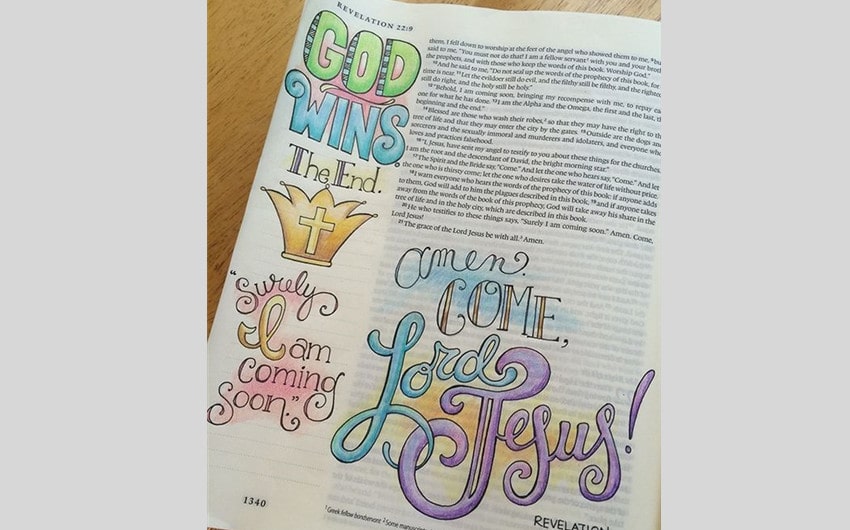 REVELATION 22:9
GOD
WINS.
The End.
"Surely
I am
coming
soon."
1340
them, I fell down to worship at the feet of the angel who showed them to me, 9but
said to me, "You must not do that! I am a fellow servant1 with you and your
the prophets, and with those who keep the words of this book. Worship God."
10And he said to me, "Do not seal up the words of the prophecy of this book, for
time is near. 11Let the evildoer still do evil, and the filthy still be filthy, and the
still do right, and the holy still be holy."
12"Behold, I am coming soon, bringing my recompense with me, to repay
one for what he has done. 13I am the Alpha and the Omega, the first and the last, the
beginning and the end."
14Blessed are those who wash their robes,2 so that they may have the right to the
tree of life and that they may enter the city by the gates. 15Outside are the dogs and
sorcerers and the sexually immoral and murderers and idolaters, and everyone who
loves and practices falsehood.
16"I, Jesus, have sent my angel to testify to you about these things for the churches.
I am the root and the descendant of David, the bright morning star."
17The Spirit and the Bride say, "Come." And let the one who hears say, "Come." And let
the one who is thirsty come; let the one who desires take the water of life without price.
18I warn everyone who hears the words of the prophecy of this book: if anyone adds
to them, God will add to him the plagues described in this book, 19and if anyone takes
away from the words of the book of this prophecy, God will take away his share in the
tree of life and in the holy city, which are described in this book.
20He who testifies to these things says, "Surely I am coming soon." Amen. Come,
Lord Jesus!
21The grace of the Lord Jesus be with all.3 Amen.
amen.
COME,
Lord
Jesus!
1Greek fellow bondservant 2Some
REVELATION